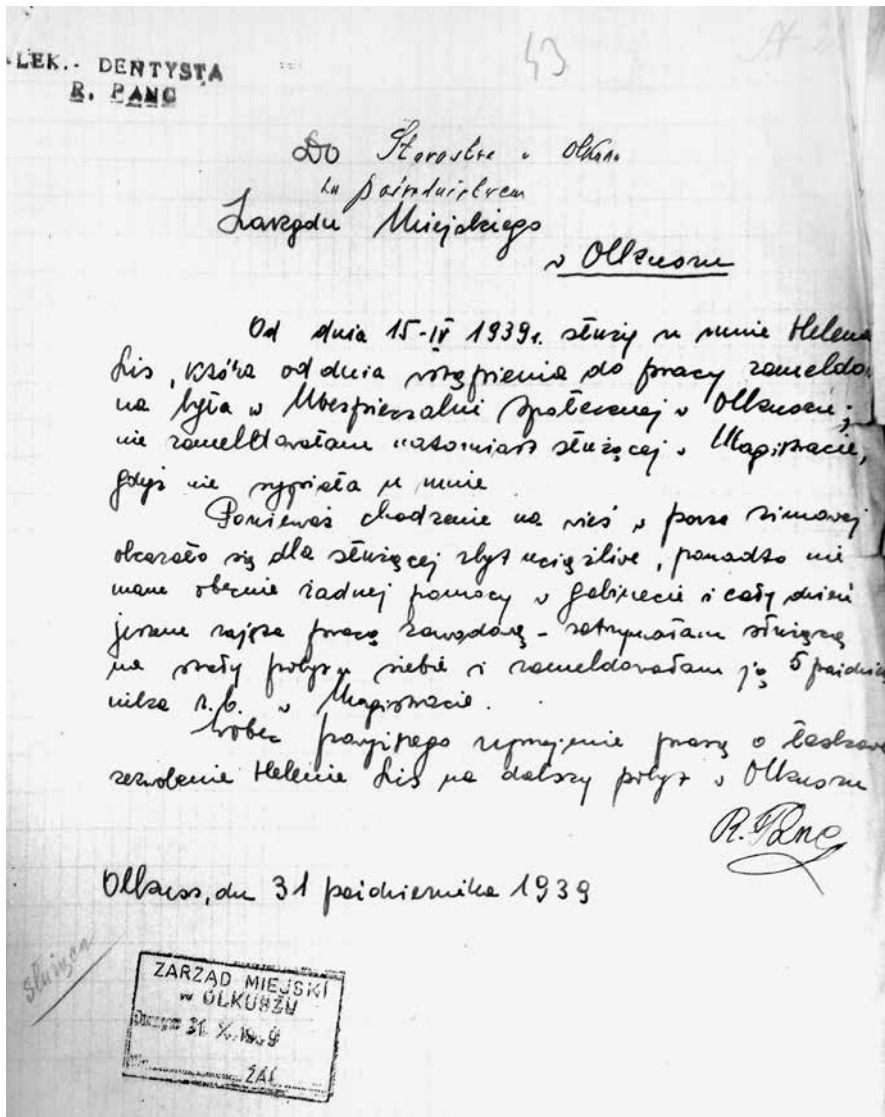 LEK.- DENTYSTA
R. PANC
43
Do Starostwa w Olkuszu
za pośrednictwem
Zarządu Miejskiego
w Olkuszu
Od dnia 15-IV 1939r. służy u mnie Helena
Lis, która od dnia wstąpienia do pracy zameldo
na była w Ubezpieczalni Społecznej w Olkuszu;
nie zameldowałam natomiast służącej w Magistracie,
gdyż nie sypiała u mnie
Ponieważ chodzenie na wieś w porze zimowej
okazało się dla służącej zbyt uciążliwe, ponadto nie
mam obecnie żadnej pomocy w gabinecie i cały dzień
jestem zajęta pracą zawodową - zatrzymałam służącą
na stały pobyt u siebie i zameldowałam ją 5 paździer
nika r.b. w Magistracie.
Wobec powyższego uprzejmie proszę o łaskawe
zezwolenie Helenie Lis na dalszy pobyt w Olkuszu
R. Panc
Olkusz, dn 31 października 1939
służąca
ZARZĄD MIEJSKI
w OLKUSZU
31. X. 1939
ZAŁ.